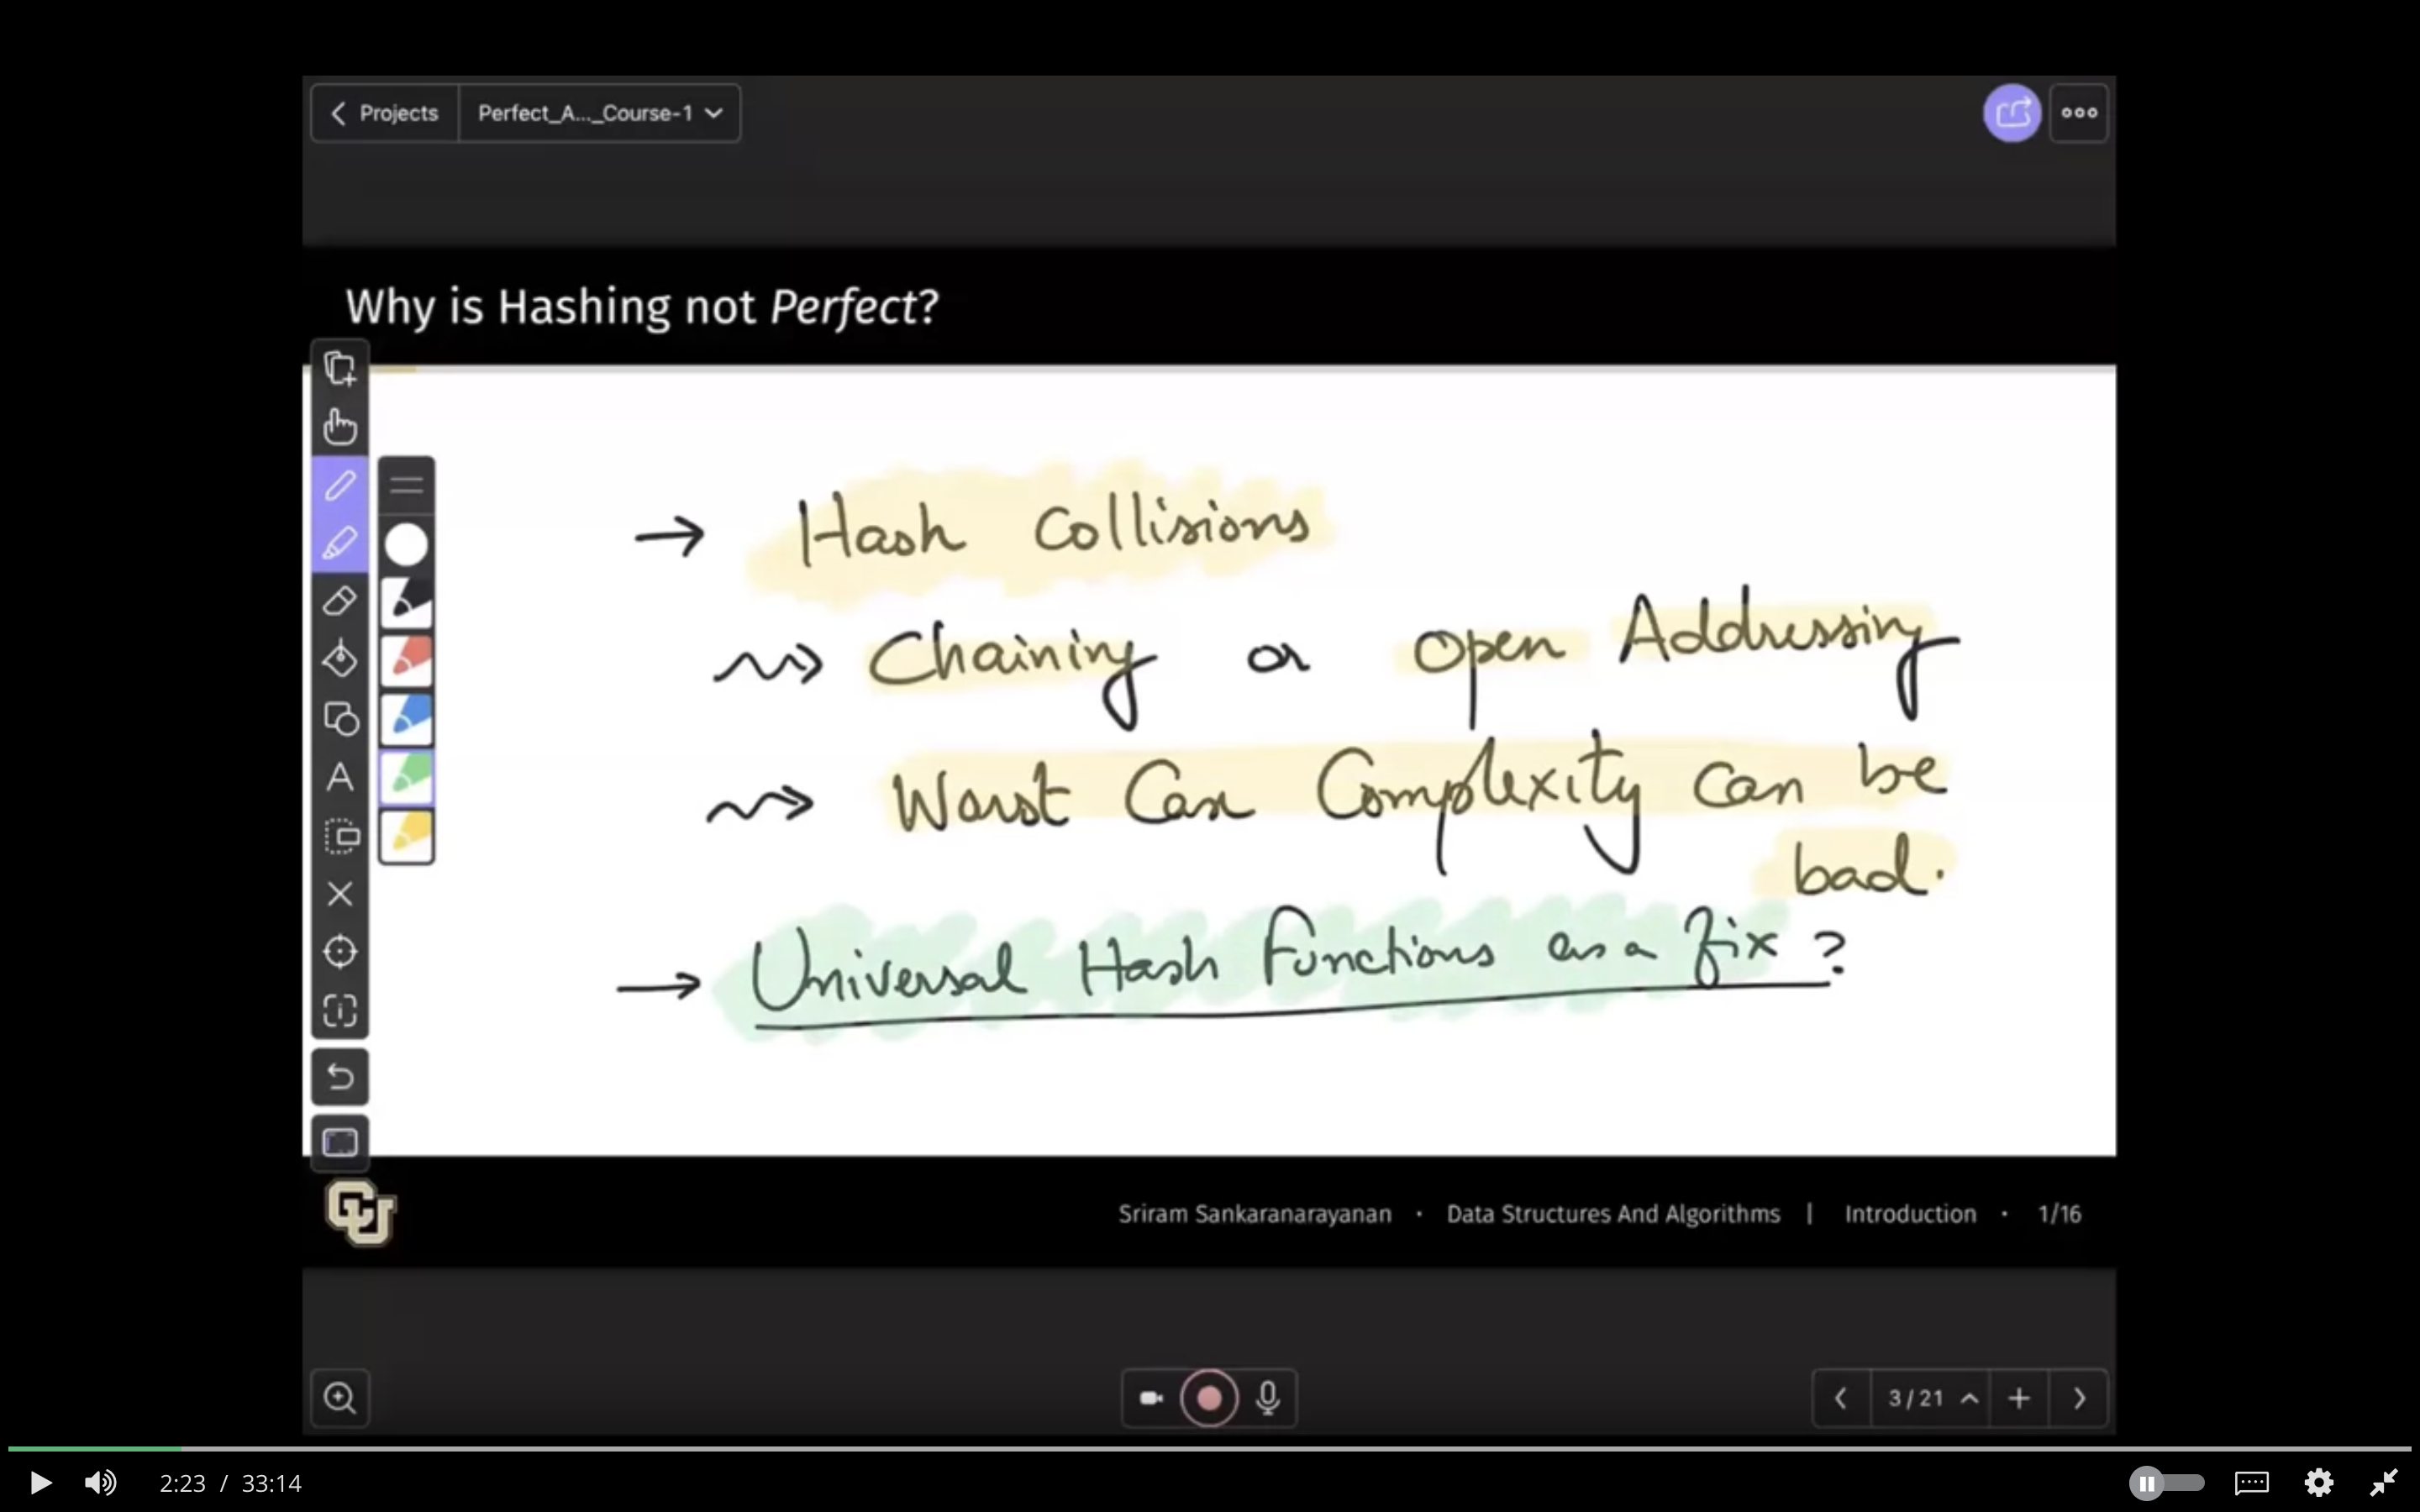 Projects Perfect_A..._Course-1
Why is Hashing not Perfect?
→ Hash Collisions
Chaining or open Addressing
Worst Case Complexity can be
bad.
→ Universal Hash Functions as a fix ?
A
CU
Sriram Sankaranarayanan · Data Structures And Algorithms | Introduction · 1/16
3/21
2:23 / 33:14